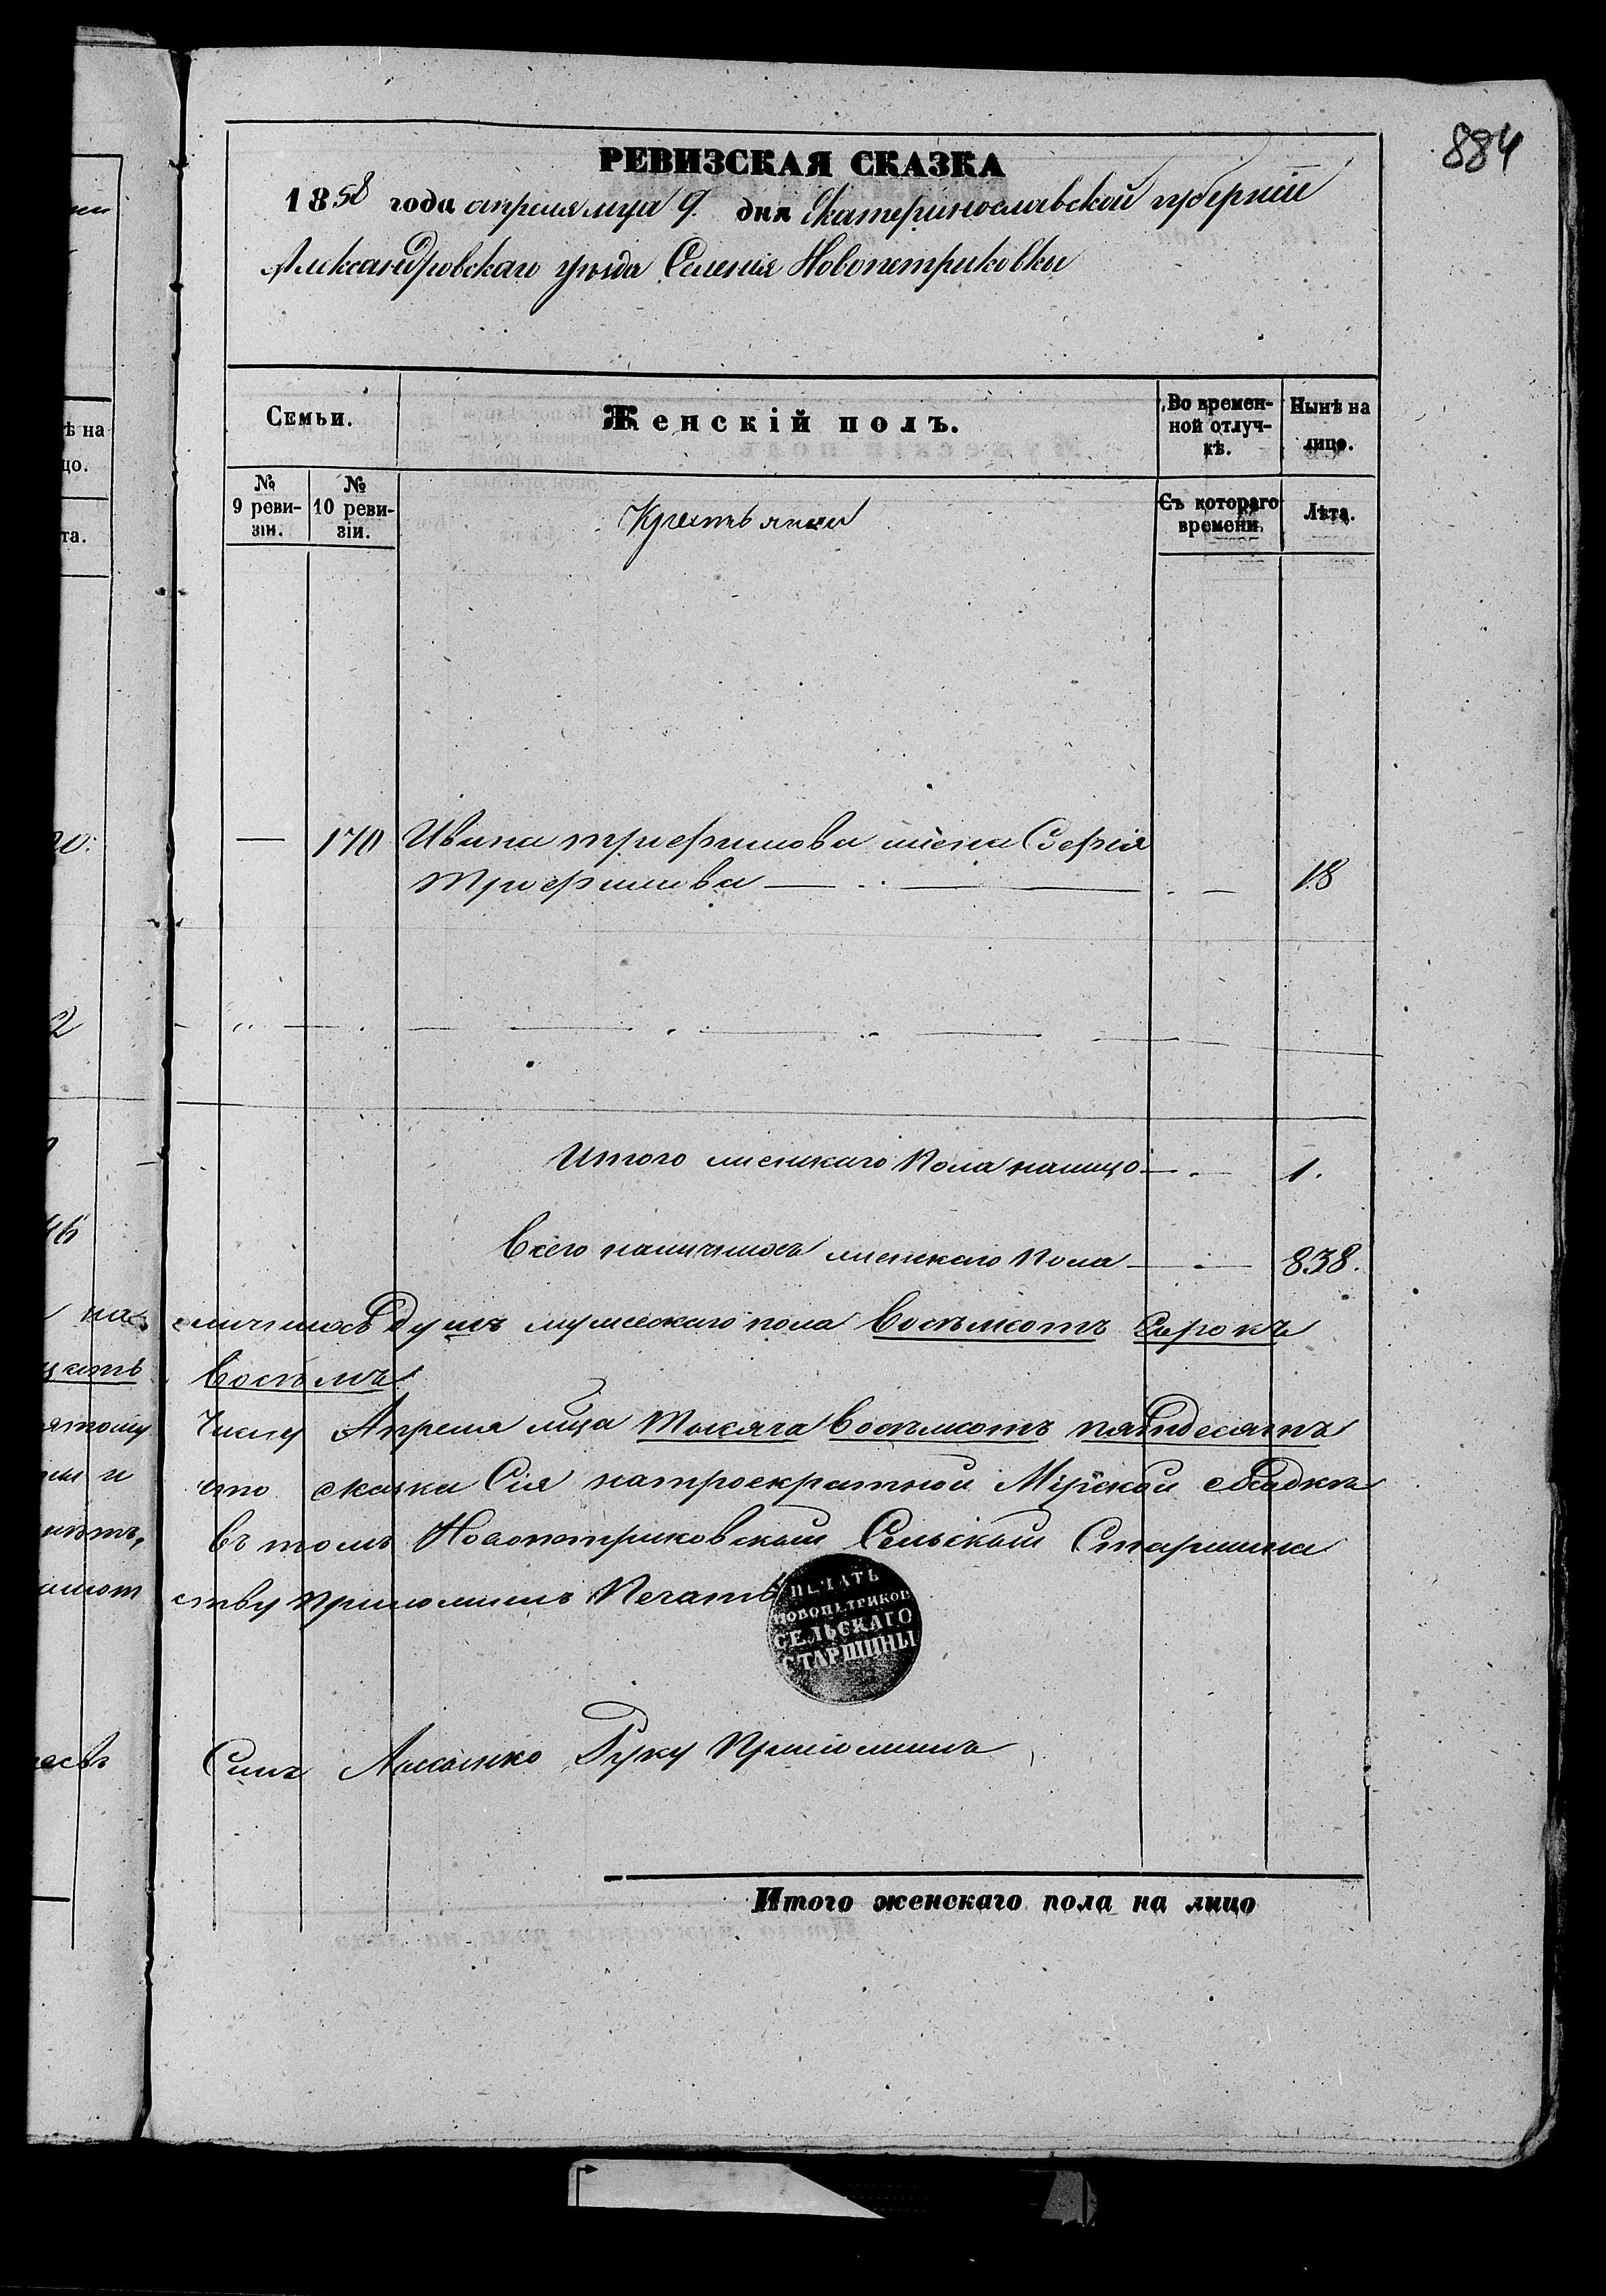 884
РЕВИЗСКАЯ СКАЗКА
1858 года апреля мца 9. дня Екатеринославской губерніи
Александровскаго уѣзда Селенія Новопетриковки
Семьи.
Женскій полъ.
Во времен-
ной отлуч-
кѣ.
Нынѣ на
лицо.
№
9 реви-
зіи.
№
10 реви-
зіи.
Крестьянки
Съ котораго
времени.
Лѣта.
ѣ на
цо.
та.
— 170 Ивана трефилова жена Софія
Трофимова — 18
2
Итого женскаго Пола налицо — 1.
46
Всего наличного женскаго Пола — 838.
на
душъ мужескаго пола Восѣмсотъ Сорокъ
цать Восѣмъ
ятому Числу Апреля мца Тысяча Восѣмсотъ пятдесятъ
и что сказка Сія натроекратной Мірской
въ томъ Новопетриковскій Сельскій Старшина
ству Приложилъ Печать
ПЕЧАТЬ
НОВОПЕТРИКОВ
СЕЛЬСКАГО
СТАРШИНЫ
Руку Приложилъ
Итого женскаго пола на лицо